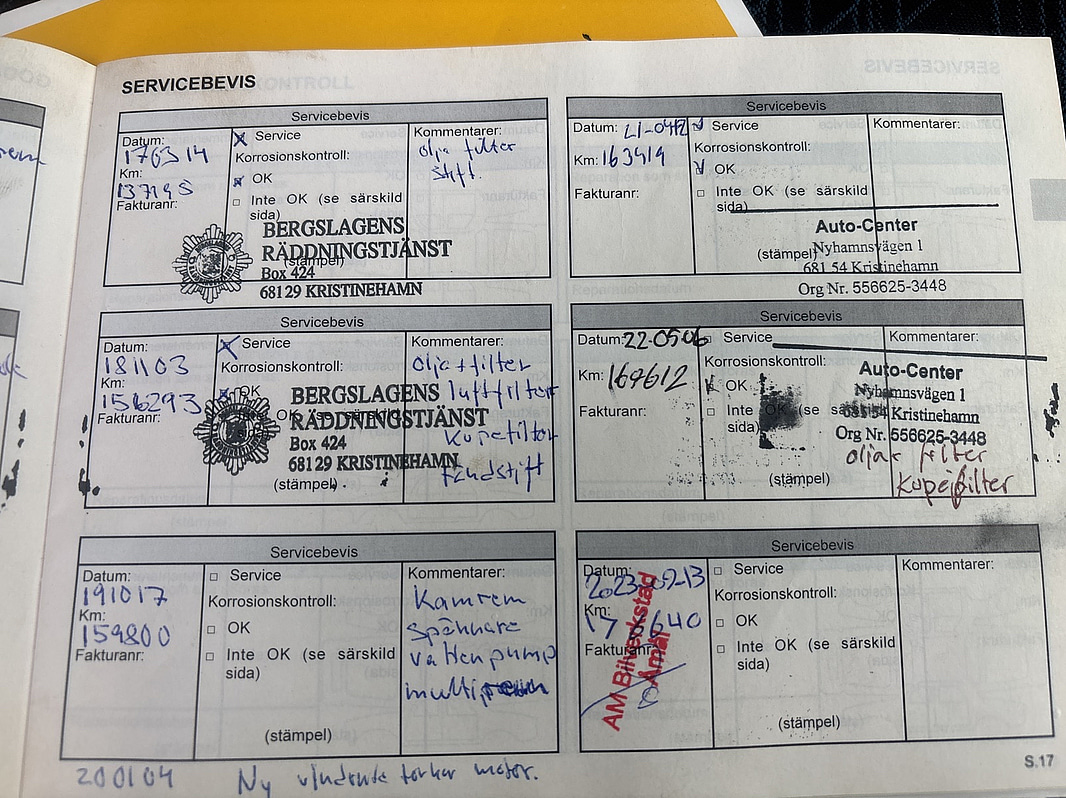 SERVICEBEVIS
Servicebevis
Datum:
170314
Km:
137195
Fakturanr:
Service
Korrosionskontroll:
OK
Inte OK (se särskild
sida)
(stämpel)
Kommentarer:
olja filter
stift.
BERGSLAGENS
RÄDDNINGSTJÄNST
Box 424
68129 KRISTINEHAMN
Servicebevis
Datum:
181103
Km:
156293
Fakturanr:
Service
Korrosionskontroll:
OK
OK särskild
(stämpel)
Kommentarer:
Olja + filter
luftfilter
Kupefilter
tändstift
BERGSLAGENS
RÄDDNINGSTJÄNST
Box 424
68129 KRISTINEHAMN
Servicebevis
Datum:
191017
Km:
159800
Fakturanr:
Service
Korrosionskontroll:
OK
Inte OK (se särskild
sida)
(stämpel)
Kommentarer:
Kamrem
spännare
vattenpump
200104 Ny vindrute torkar motor.
Servicebevis
Datum: 21-04-12
Km: 163419
Fakturanr:
Service
Korrosionskontroll:
OK
Inte OK (se särskild
sida)
(stämpel)
Kommentarer:
Auto-Center
Nyhamnsvägen 1
681 54 Kristinehamn
Org Nr. 556625-3448
Servicebevis
Datum: 22-05-06
Km: 169612
Fakturanr:
Service
Korrosionskontroll:
OK
Inte OK (se särskild
sida)
(stämpel)
Kommentarer:
Auto-Center
Nyhamnsvägen 1
681 54 Kristinehamn
Org Nr. 556625-3448
olja filter
Kupefilter
Servicebevis
Datum:
2023-09-13
Km:
176640
Fakturanr:
AM Bilverkstad
Åmål
Service
Korrosionskontroll:
OK
Inte OK (se särskild
sida)
(stämpel)
Kommentarer:
S.17